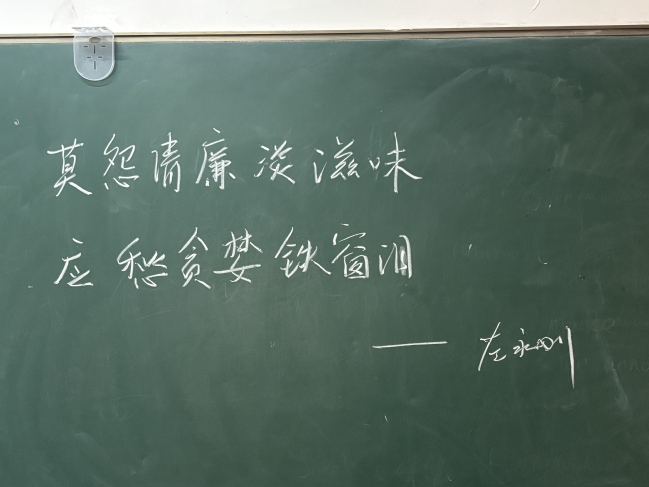 莫怨清廉淡滋味
应愁贪婪铁窗泪
—— 左永刚